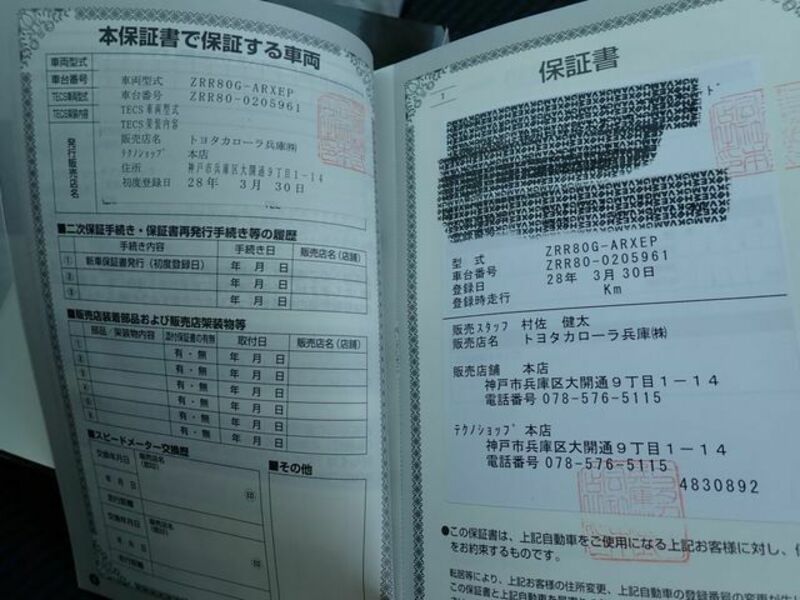 本保証書で保証する車両
車両型式
車台番号
TECS車両型式
TECS架装内容
発行販売店名
車両型式 ZRR80G-ARXEP
車台番号 ZRR80-0205961
TECS車両型式
TECS架装内容
販売店名 トヨタカローラ兵庫㈱
テクノショップ 本店
住所 神戸市兵庫区大開通9丁目1-14
初度登録日 28年 3月 30日
■二次保証手続き・保証書再発行手続き等の履歴
手続き内容 手続き日 販売店名(店舗)
① 新車保証書発行(初度登録日) 年 月 日
② 年 月 日
③ 年 月 日
■販売店装着部品および販売店架装物等
部品/架装物内容 添付保証書の有無 取付日 販売店名(店舗)
有・無 年 月 日
有・無 年 月 日
有・無 年 月 日
有・無 年 月 日
有・無 年 月 日
有・無 年 月 日
■スピードメーター交換歴
交換年月日 販売店名
年 月 日
走行距離 印
交換年月日 販売店名
年 月 日
走行距離 印
■その他
保証書
型 式 ZRR80G-ARXEP
車台番号 ZRR80-0205961
登録日 28年 3月30日
登録時走行 Km
販売スタッフ 村佐 健太
販売店名 トヨタカローラ兵庫㈱
販売店舗 本店
神戸市兵庫区大開通9丁目1-14
電話番号 078-576-5115
テクノショップ 本店
神戸市兵庫区大開通9丁目1-14
電話番号 078-576-5115
4830892
●この保証書は、上記自動車をご使用になる上記お客様に対し、
をお約束するものです。
転居等により、上記お客様の住所変更、上記自動車の登録番号の変更が
この保証書と上記自動車を